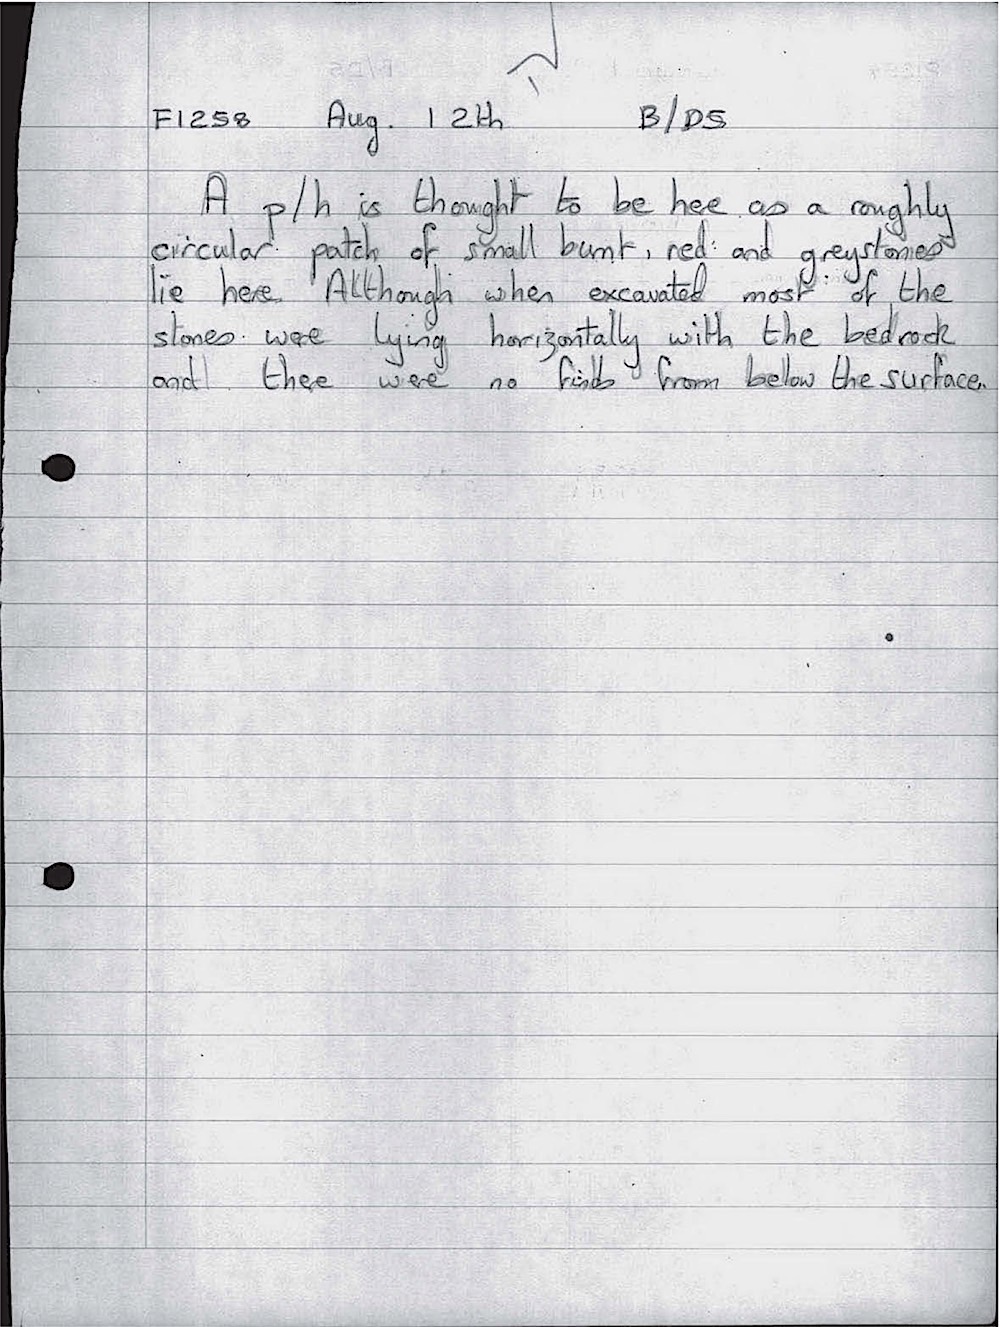 F1258 Aug. 12th B/DS
A p/h is thought to be here as a roughly
circular patch of small burnt, red and grey stones
lie here. Although when excavated most of the
stones were lying horizontally with the bedrock
and there were no finds from below the surface.